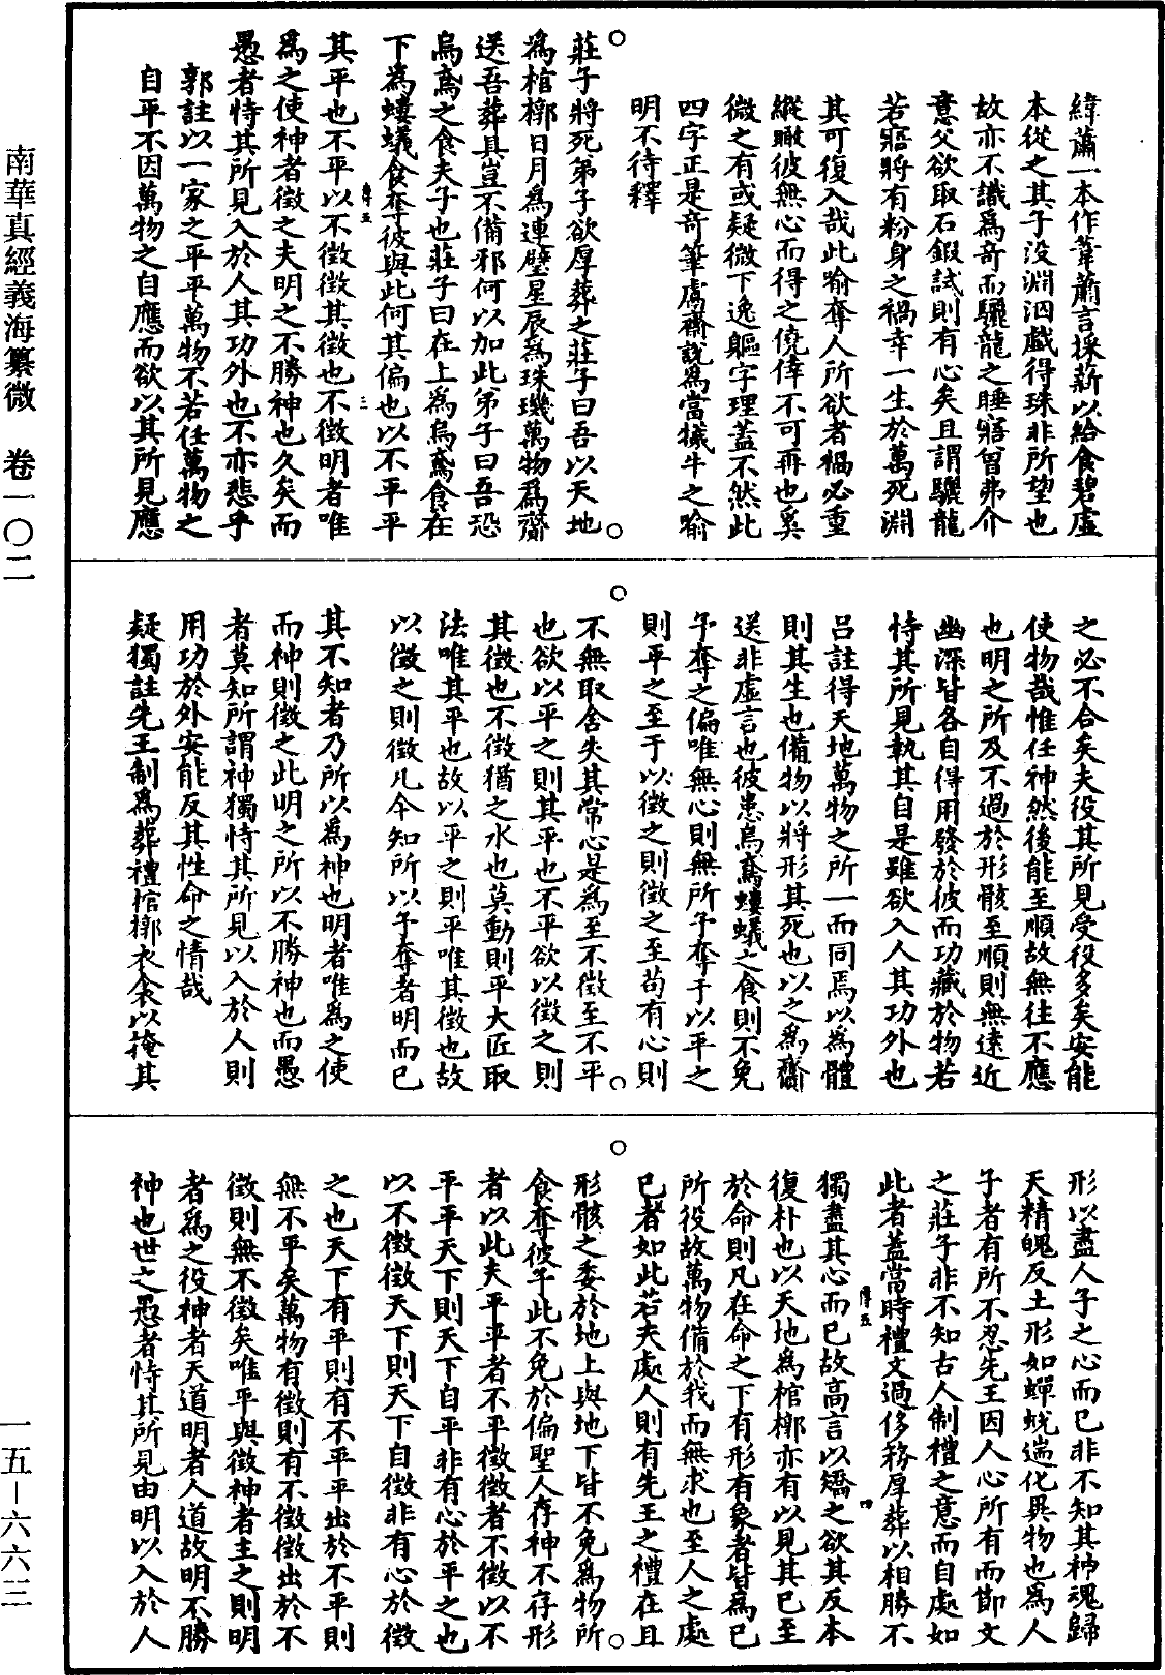 緯蕭一本作葦蕭言採薪以給食碧虛
本從之其子没淵泅戲得珠非所望也
故亦不識爲奇而驪龍之睡寤曾弗介
意父欲取石鍜試則有心矣且謂驪龍
若寤將有粉身之禍幸一生於萬死淵
其可復入哉此喻奪人所欲者禍必重
縱瞰彼無心而得之僥倖不可再也奚
微之有或疑微下逸軀字理蓋不然此
四字正是奇筆鬳齋說爲當犧牛之喻
明不待釋
莊子將死弟子欲厚葬之莊子曰吾以天地
爲棺槨日月爲連璧星辰爲珠璣萬物爲齎
送吾葬具豈不備邪何以加此弟子曰吾恐
烏鳶之食夫子也莊子曰在上爲烏鳶食在
下爲螻蟻食奪彼與此何其偏也以不平平
其平也不平以不徵徵其徵也不徵明者唯
爲之使神者徵之夫明之不勝神也久矣而
愚者恃其所見入於人其功外也不亦悲乎
郭註以一家之平平萬物不若任萬物之
自平不因萬物之自應而欲以其所見應
之必不合矣夫役其所見受役多矣安能
使物哉惟任神然後能至順故無往不應
也明之所及不過於形骸至順則無遠近
幽深皆各自得用發於彼而功藏於物若
恃其所見執其自是雖欲入人其功外也
呂註得天地萬物之所一而同焉以為體
則其生也備物以將形其死也以之爲齎
送非虛言也彼患烏鳶螻蟻之食則不免
予奪之偏唯無心則無所予奪于以平之
則平之至于以徵之則徵之至苟有心則
不無取舍失其常心是為至不徵至不平
也欲以平之則其平也不平欲以徵之則
其徵也不徵猶之水也莫動則平大匠取
法唯其平也故以平之則平唯其徵也故
以徵之則徵凡今知所以予奪者明而已
其不知者乃所以為神也明者唯為之使
而神則徵之此明之所以不勝神也而愚
者莫知所謂神獨恃其所見以入於人則
用功於外安能反其性命之情哉
疑獨註先王制爲葬禮棺槨衣衾以掩其
形以盡人子之心而已非不知其神魂歸
天精魄反土形如蟬蛻遄化異物也爲人
子者有所不忍先王因人心所有而節文
之莊子非不知古人制禮之意而自處如
此者蓋當時禮文過侈務厚葬以相勝不
獨盡其心而已故高言以矯之欲其反本
復朴也以天地爲棺槨亦有以見其已至
於命則凡在命之下有形有象者皆爲己
所役故萬物備於我而無求也至人之處
已者如此若夫處人則有先王之禮在且
形骸之委於地上與地下皆不免爲物所
食奪彼予此不免於偏聖人存神不存形
者以此夫平平者不平徵徵者不徵以不
平平天下則天下自平非有心於平之也
以不徵徵天下則天下自徵非有心於徵
之也天下有平則有不平平出於不平則
無不平矣萬物有徵則有不徵徵出於不
徵則無不徵矣唯平與徵神者主之則明
者爲之役神者天道明者人道故明不勝
神也世之愚者恃其所見由明以入於人
南華真經義海纂微　卷一〇二
一五—六六三